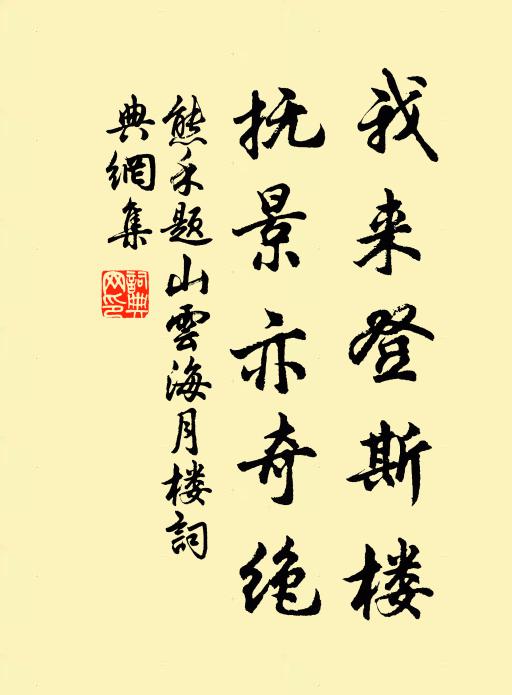 我来登斯楼
抚景亦奇绝
熊禾题山雲海月楼詞
典網集
詞典
网印